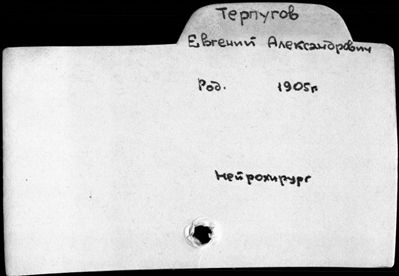 Терпугов
Евгений Александрович
Род. 1905г
Нейрохирург